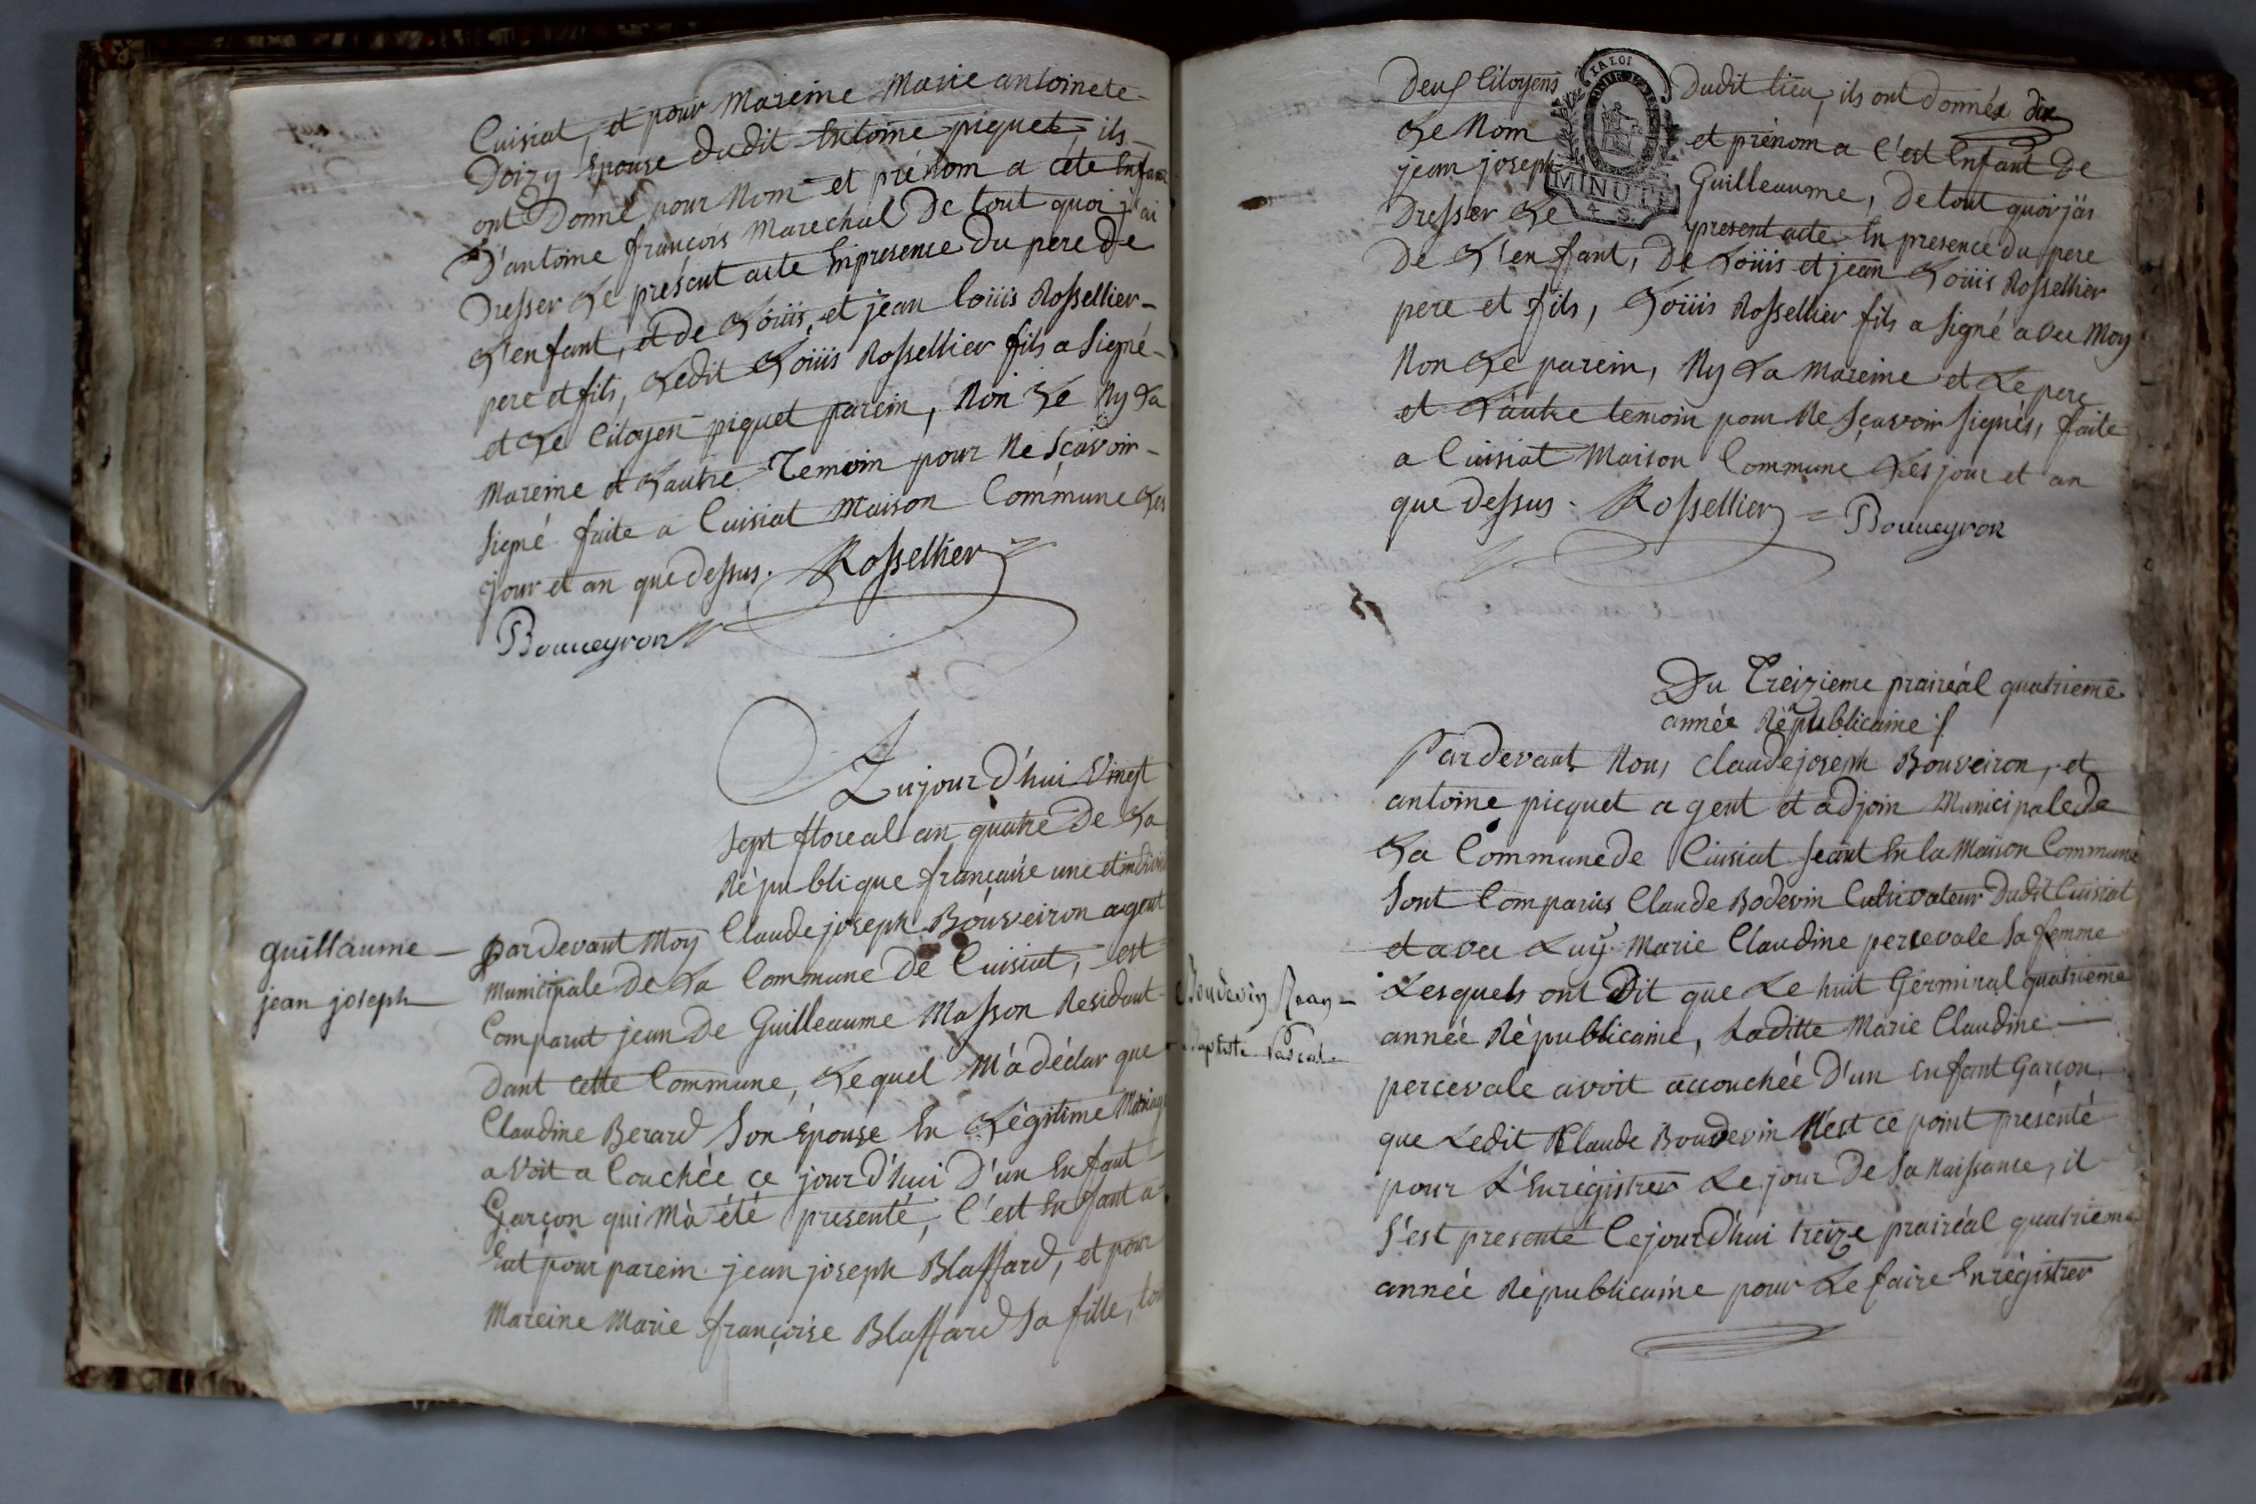 Cuisiat, et pour Mareine Marie antoinete
Doizy Epouse dudit Entoine piquet ils
ont Donné pour Nom et prénom a cète Enfant
D'antoine françois Marechal De tout quoi j'ai
Dresser Le présent acte Enpresence Du pere De
L'enfant, et de Loüis, et jean loüis Rossellier
pere et fils, Ledit Loüis Rossellier fils a Signé
et Le Citoyen piquet parein, Non Le Ny La
Mareine et Lautre Temoin pour Ne Sçavoir
Signé faite a Cuisiat Maison Commune Les
jour et an que dessus. Rossellier
Bouveyron
Aujourd'hui Vingt
Sept floreal an quatre De La
République française une et indivis
guillaume
jean joseph
pardevant Moy Claude joseph Bouveiron agent
Municipale De La Commune De Cuisiat, est
Comparut jean De Guilleaume Masson Residant
Dant cette Commune, Lequel M'a déclar que
Claudine Berard Son Épouse En Légitime Mariag
a Voit a Couchée ce jour d'hui D'un Enfant
Garçon qui M'a été présenté, C'est Enfant a
Eut pour parein jean joseph Blaffard, et pour
Mareine Marie françoise Blaffard Sa fille, tous
Deux Citoyens dudit lieu, ils ont donnés
Le Nom et prénom a C'est Enfant De
jean joseph Guilleaume, De tout quoi j'ai
MINUTE
Dresser Le present acte En presence du pere
De L'enfant, De Loüis et jean Loüis Rossellier
pere et fils, Loüis Rossellier fils a Signé avec Moy
Non Le parein, Ny La Mareine et Le pere
et L'autre temoin pour Ne Sçavoir Signés, faite
a Cuisiat Maison Commune Les jour et an
que dessus. Rossellier Bouveyron
Du Treizieme prairéal quatrieme
année Républicaine
Pardevant Nous Claude joseph Bouveiron, et
antoine picquet agent et adjoin Municipale De
La Commune de Cuisiat Seant En la Maison Commune
Sont Comparus Claude Bodevin Cultivateur Dudit Cuisiat
et avec Luy Marie Claudine percevale Sa femme
Boudevin Jean
Baptiste Pascal
Lesquels ont Dit que Le huit Gérminal quatrieme
année Républicaine, Laditte Marie Claudine
percevale avoit accouchée D'un Enfant Garçon,
que Ledit Claude Boudevin N'est ce point présenté
pour L'Enrégistrer Le jour De Sa Naissance, il
S'est presenté Cejourd'hui treize prairéal quatrieme
année Républicaine pour Le faire Enrégistrer